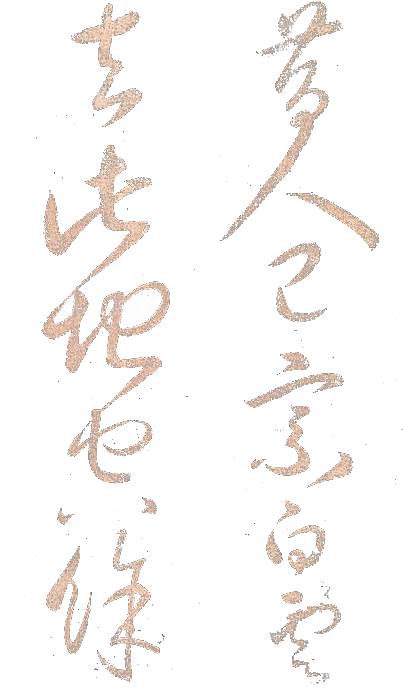 昔人已乘白雲
去此地空餘